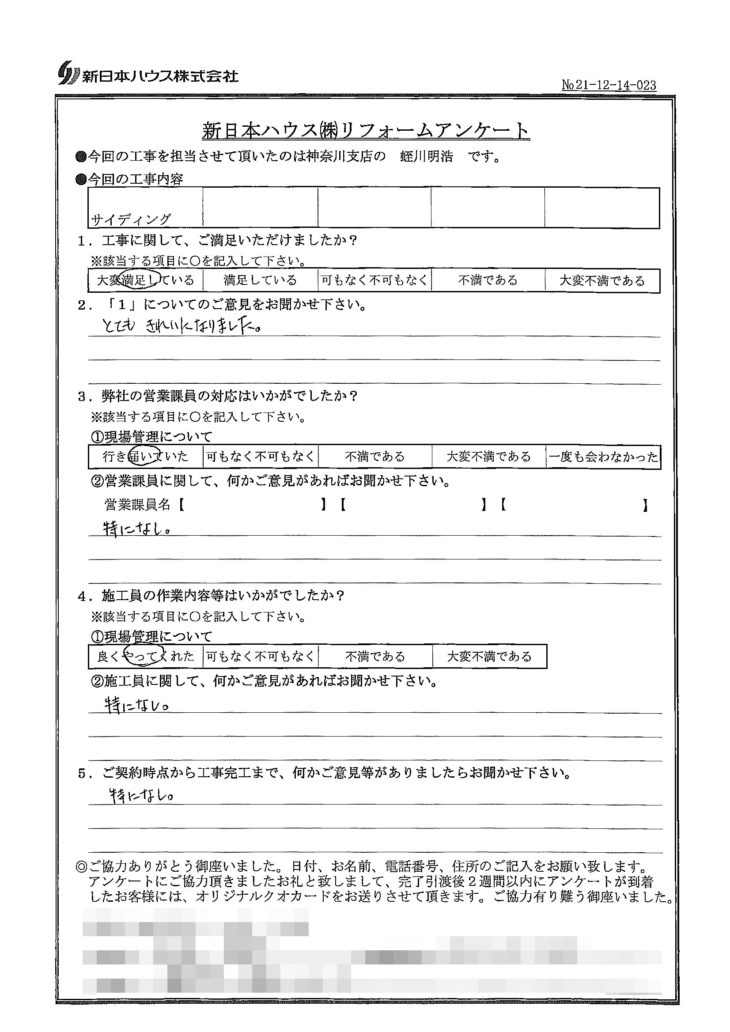 新日本ハウス株式会社
№21-12-14-023
新日本ハウス㈱リフォームアンケート
●今回の工事を担当させて頂いたのは神奈川支店の 蛭川明浩 です。
●今回の工事内容
サイディング
1．工事に関して、ご満足いただけましたか？
※該当する項目に○を記入して下さい。
大変満足している 満足している 可もなく不可もなく 不満である 大変不満である
2．「1」についてのご意見をお聞かせ下さい。
とても きれいになりました。
3．弊社の営業課員の対応はいかがでしたか？
※該当する項目に○を記入して下さい。
①現場管理について
行き届いていた 可もなく不可もなく 不満である 大変不満である 一度も会わなかった
②営業課員に関して、何かご意見があればお聞かせ下さい。
営業課員名【 】【 】【 】
特になし。
4．施工員の作業内容等はいかがでしたか？
※該当する項目に○を記入して下さい。
①現場管理について
良くやってくれた 可もなく不可もなく 不満である 大変不満である
②施工員に関して、何かご意見があればお聞かせ下さい。
特になし。
5．ご契約時点から工事完工まで、何かご意見等がありましたらお聞かせ下さい。
特になし。
◎ご協力ありがとう御座いました。日付、お名前、電話番号、住所のご記入をお願い致します。
アンケートにご協力頂きましたお礼と致しまして、完了引渡後2週間以内にアンケートが到着
したお客様には、オリジナルクオカードをお送りさせて頂きます。ご協力有り難う御座いました。